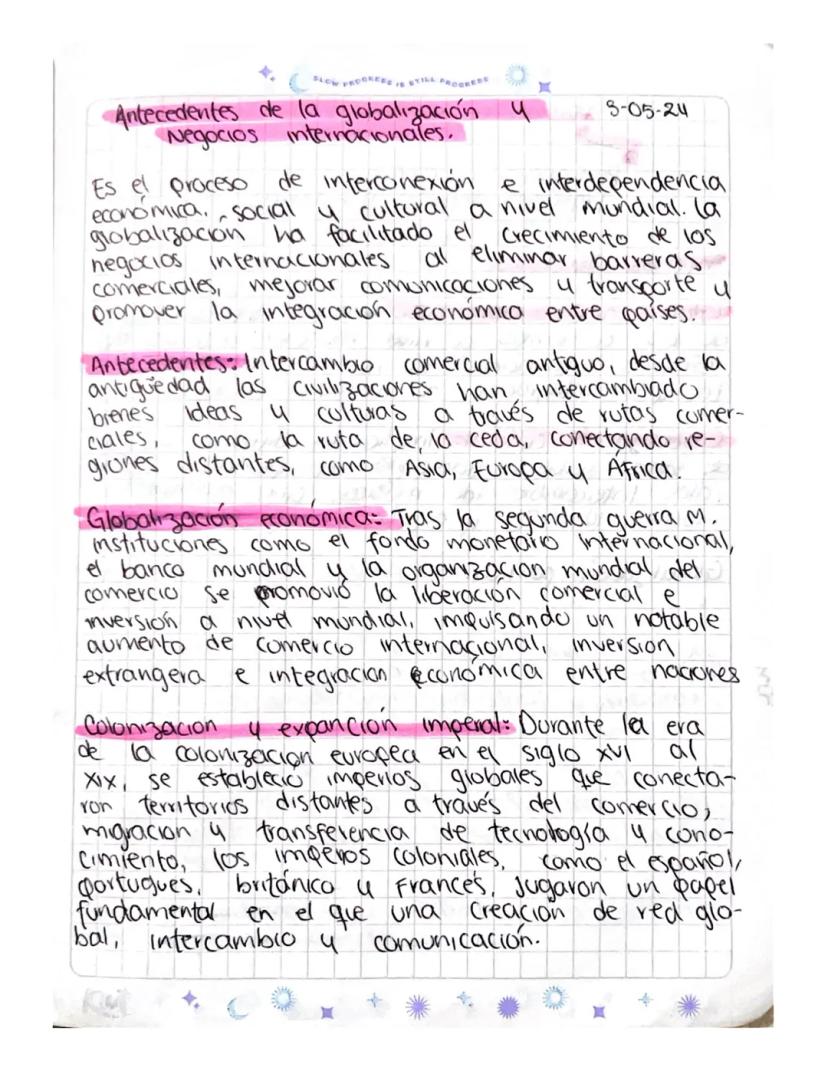 SLOW PROGRESS IS STILL PROGRESS
Antecedentes de la globalización y 3-05-24
Negocios internacionales.
Es el proceso de interconexión e interdependencia
económica, social y cultural a nivel mundial. La
globalización ha facilitado el crecimiento de los
negocios internacionales al eliminar barreras
comerciales, mejorar comunicaciones y transporte y
promover la integración económica entre países.
Antecedentes: Intercambio comercial antiguo, desde la
antigüedad las civilizaciones han intercambiado
bienes ideas y culturas a través de rutas comer-
ciales, como la ruta de la ceda, conectando re-
giones distantes, como Asia, Europa y África.
Globalización económica: Tras la segunda guerra M.
instituciones como el fondo monetario internacional,
el banco mundial y la organización mundial del
comercio se promovió la liberación comercial e
inversión a nivel mundial, impulsando un notable
aumento de comercio internacional, inversion
extrangera e integracion económica entre naciones
Colonizacion y expanción imperal: Durante la era
de la colonizacion europea en el siglo XVI al
XIX, se estableció imperios globales que conecta-
ron territorios distantes a través del comercio,
migracion y transferencia de tecnología y cono-
cimiento, los imperios coloniales, como el español,
portugues, británico y Francés, jugaron un papel
fundamental en el que una creación de red glo-
bal, intercambio y comunicación.